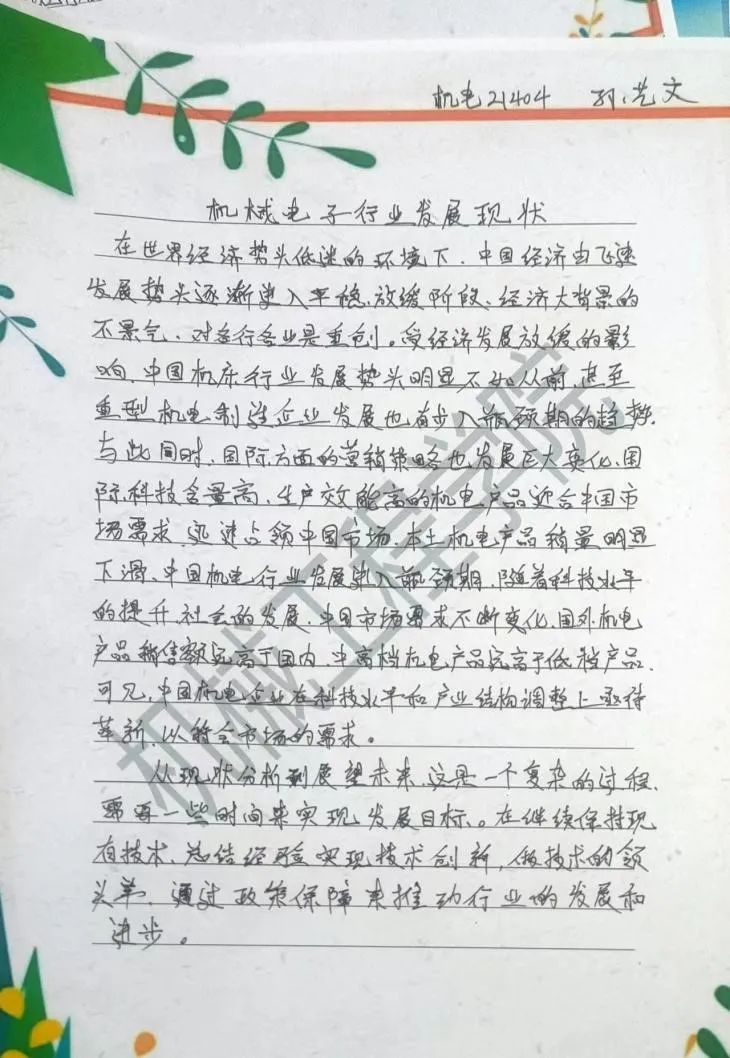 机电21404 孙艺文
机械电子行业发展现状
在世界经济势头低迷的环境下、中国经济由飞速
发展势头逐渐进入平稳、放缓阶段、经济大背景的
不景气、对各行各业是重创。受经济发展放缓的影
响、中国机床行业发展势头明显不如从前、甚至
重型机电制造企业发展也有步入瓶颈期的趋势.
与此同时、国际方面的营销策略也发展巨大变化、国
际科技含量高、生产效能高的机电产品迎合中国市
场需求、迅速占领中国市场、本土机电产品销量明显
下滑、中国机电行业发展进入瓶颈期、随着科技水平
的提升、社会的发展、中国市场需求不断变化、国外机电
产品销售额远高于国内、中高档机电产品远高于低档产品、
可见、中国机电企业在科技水平和产业结构调整上亟待
革新、以符合市场的需求。
从现状分析到展望未来、这是一个复杂的过程、
需要一些时间来实现发展目标。在继续保持现
有技术、总结经验实现技术创新、做技术的领
头羊、通过政策保障来推动行业的发展和
进步。
机械工程学院